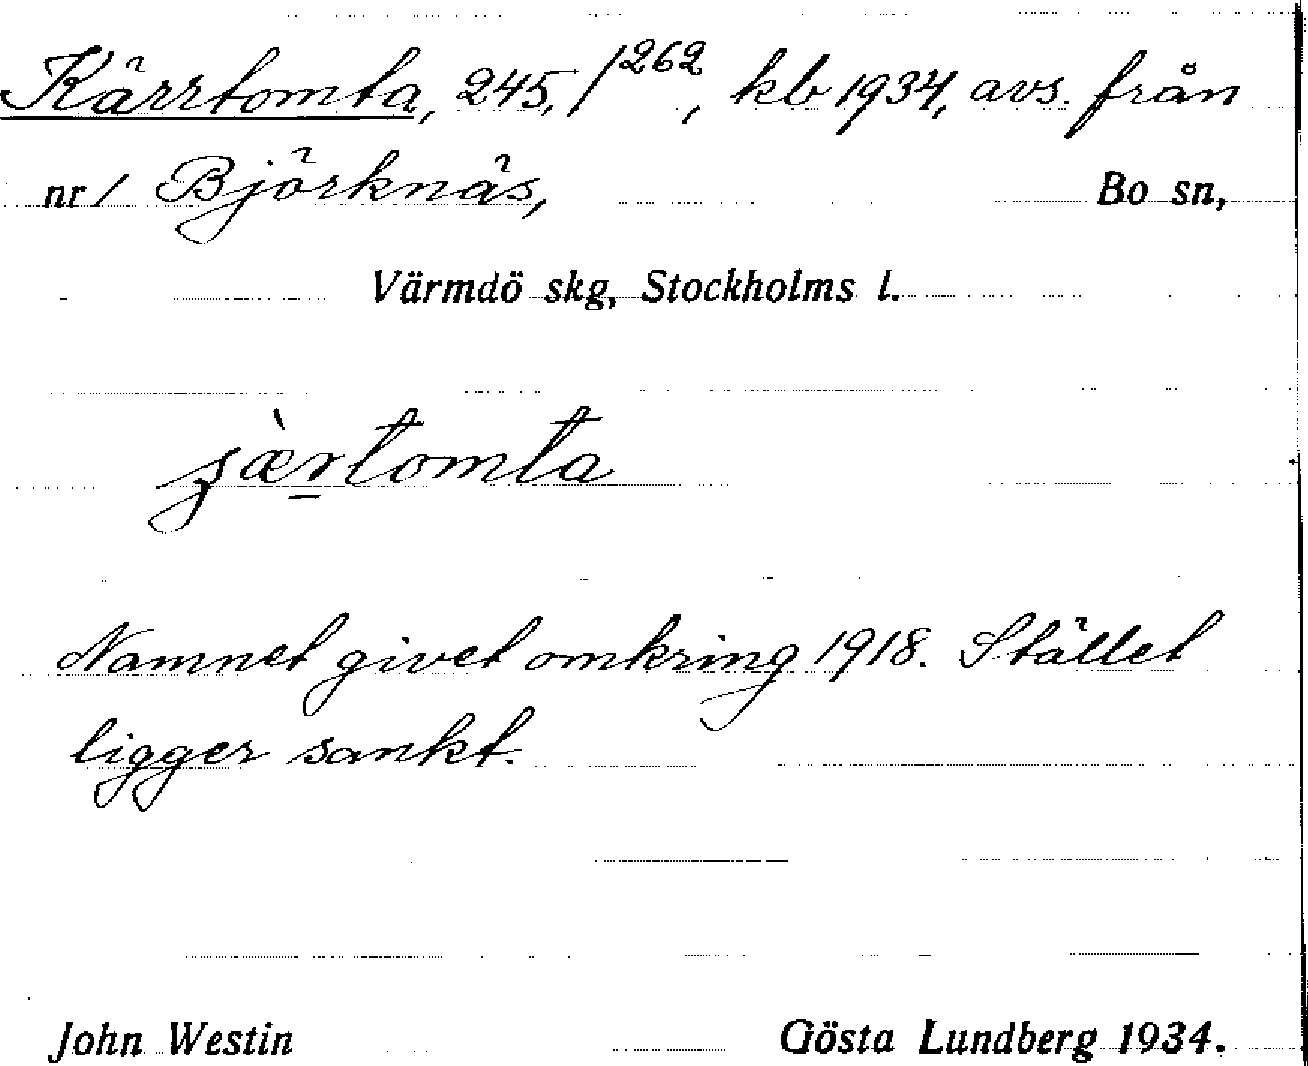 Kärrtomta, 245, /262, kb 1934, avs. från
nr 1 Björknäs, Bo sn,
Värmdö skg, Stockholms l.
Namnet givet omkring 1918. Stället
ligger sankt.
John Westin Gösta Lundberg 1934.